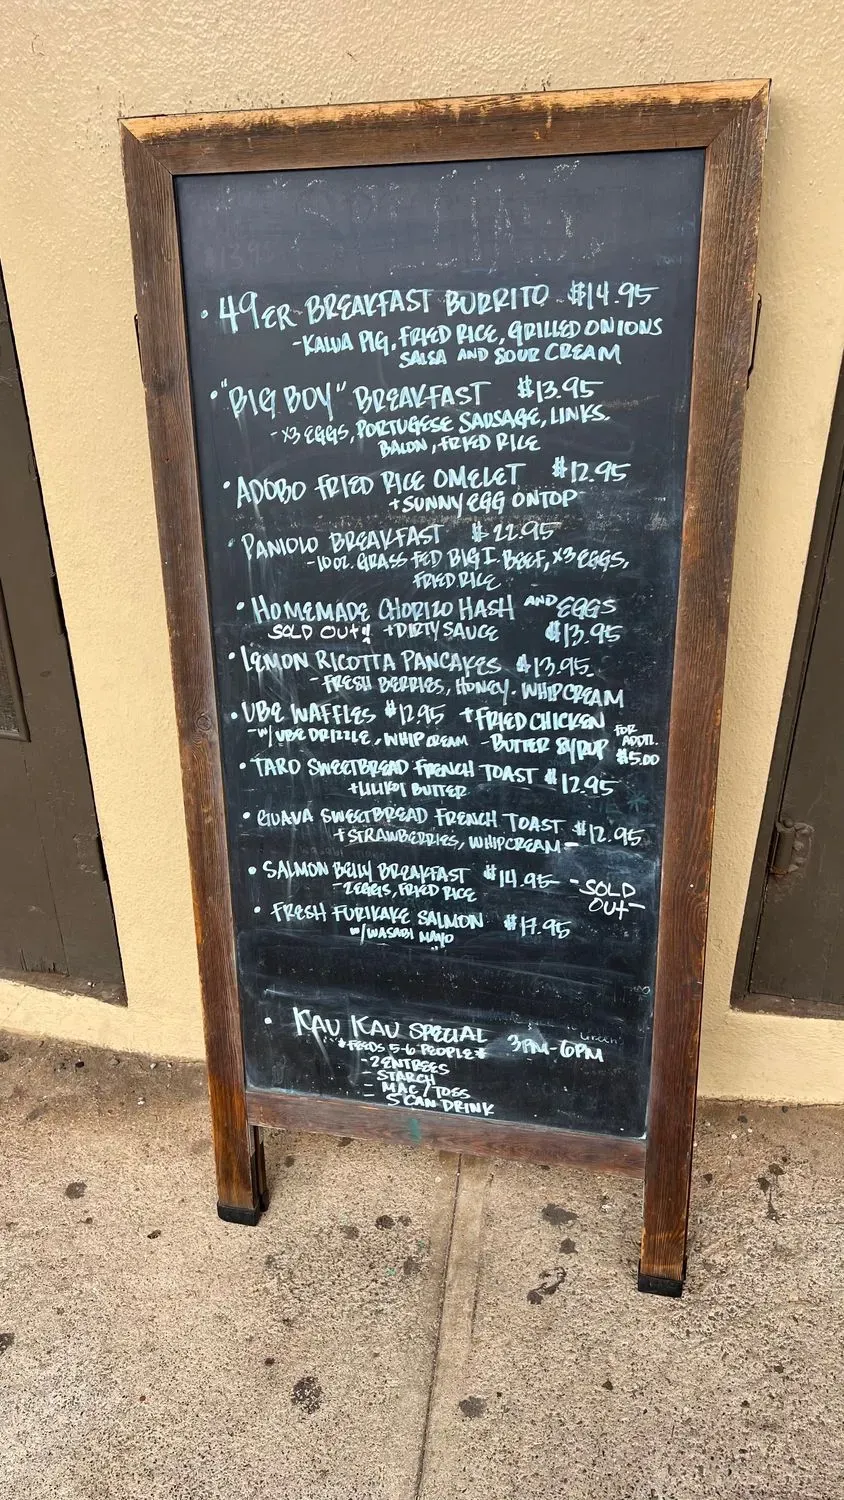 SPECIALS
• 49ER BREAKFAST BURRITO $14.95
- KALUA PIG, FRIED RICE, GRILLED ONIONS
SALSA AND SOUR CREAM
• "BIG BOY" BREAKFAST $13.95
- x3 EGGS, PORTUGESE SAUSAGE, LINKS,
BACON, FRIED RICE
• ADOBO FRIED RICE OMELET $12.95
+ SUNNY EGG ON TOP
• PANIOLO BREAKFAST $22.95
- 10 OZ. GRASS FED BIG I. BEEF, x3 EGGS,
FRIED RICE
• HOMEMADE CHORIZO HASH AND EGGS
SOLD OUT! + DIRTY SAUCE $13.95
• LEMON RICOTTA PANCAKES $13.95
- FRESH BERRIES, HONEY - WHIPCREAM
• UBE WAFFLES $12.95 + FRIED CHICKEN
- W/ UBE DRIZZLE, WHIP CREAM - BUTTER SYRUP FOR ADDTL. $5.00
• TARO SWEETBREAD FRENCH TOAST $12.95
+ LILIKOI BUTTER
• GUAVA SWEETBREAD FRENCH TOAST $12.95
+ STRAWBERRIES, WHIPCREAM -
• SALMON BELLY BREAKFAST $14.95 - SOLD OUT -
- 2 EGGS, FRIED RICE
• FRESH FURIKAKE SALMON $17.95
W/ WASABI MAYO
• KAU KAU SPECIAL 3PM-6PM
*FEEDS 5-6 PEOPLE*
- 2 ENTREES
- STARCH
- MAC / TOSS
- 5 CAN DRINK